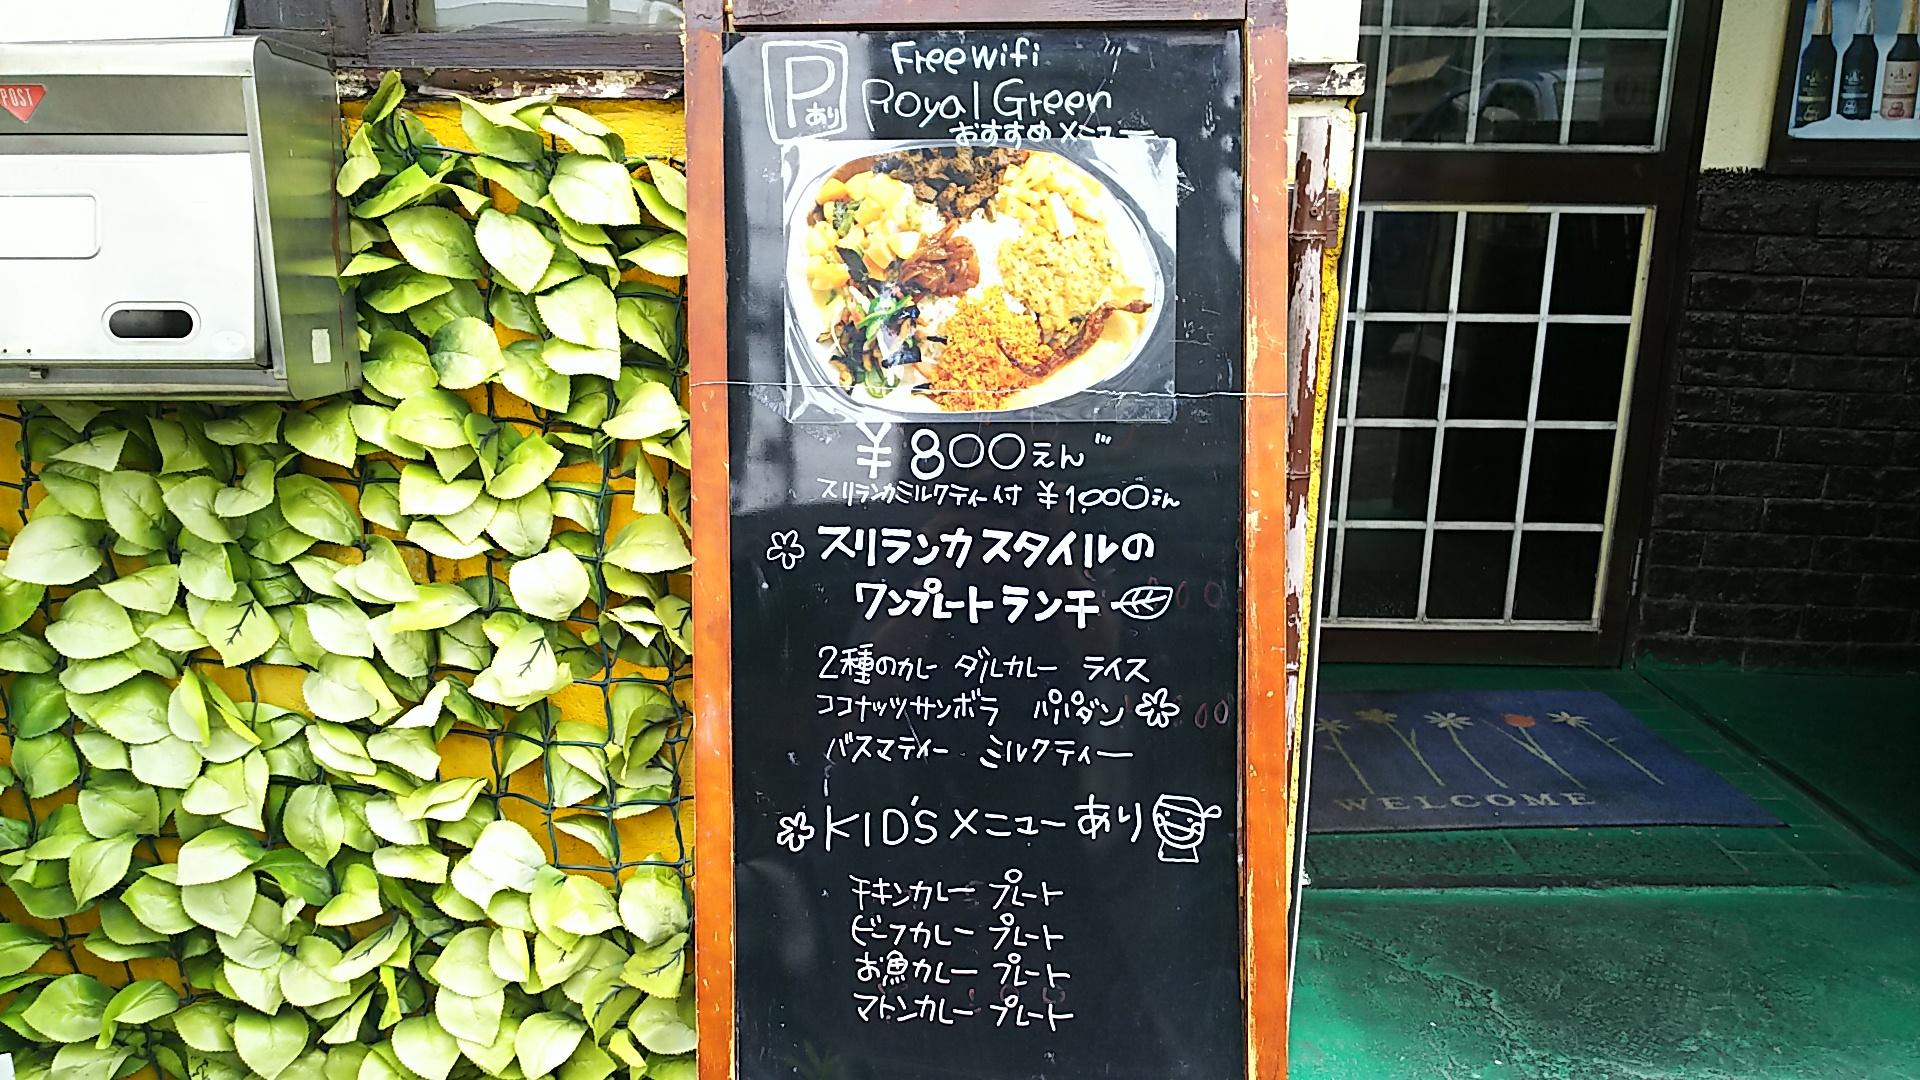 POST
Pあり
Free wifi
Royal Green
おすすめメニュー
¥800えん
スリランカミルクティー付 ¥1,000えん
スリランカスタイルの
ワンプレートランチ
2種のカレー ダルカレー ライス
ココナッツサンボラ パパダン
バスマティー ミルクティー
KID'Sメニューあり
チキンカレー プレート
ビーフカレー プレート
お魚カレー プレート
マトンカレー プレート
WELCOME